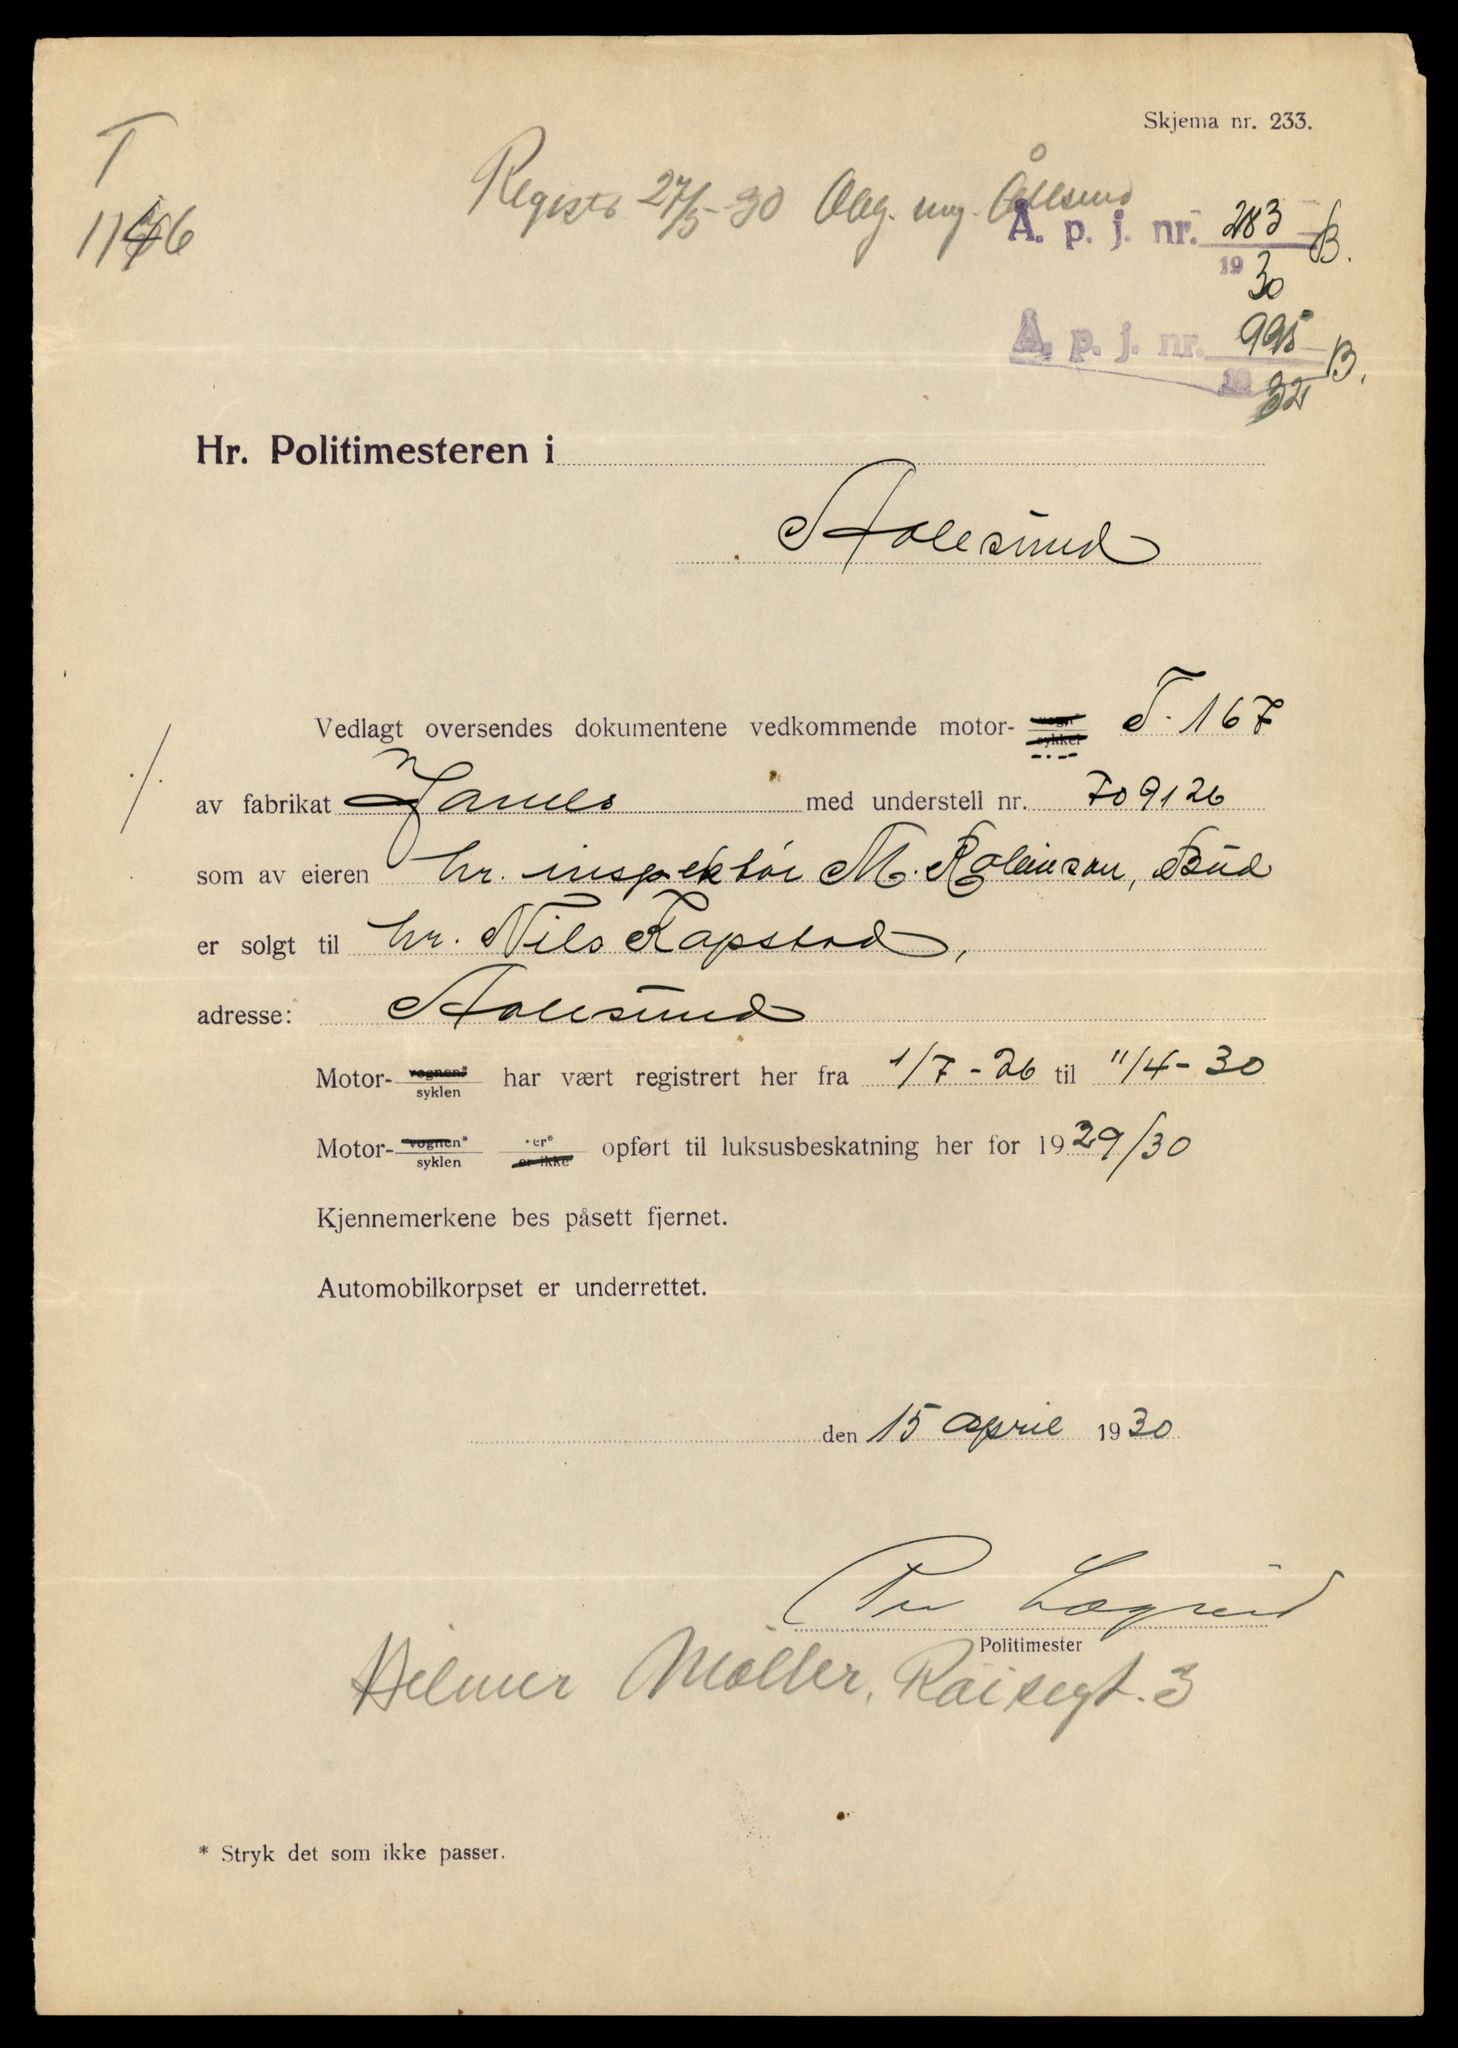 Skjema nr. 233.
T
1166
Registr 27/5-30 Obg. mg. Ålesund
Å. p. j. nr. 283 B.
1930
Å. p. j. nr. 995 B.
1932
Hr. Politimesteren i
Aalesund
Vedlagt oversendes dokumentene vedkommende motor- vogn sykkel T-167
av fabrikat James med understell nr. 709126
som av eieren hr. inspektør M. Robinson, Bud
er solgt til hr. Nils Kapstad,
adresse: Aalesund
Motor- vognen* syklen har vært registrert her fra 1/7-26 til 11/4-30
Motor- vognen* syklen er* er ikke opført til luksusbeskatning her for 1929/30
Kjennemerkene bes påsett fjernet.
Automobilkorpset er underrettet.
den 15 april 1930
Politimester
Hilmer Möller, Kaisegt. 3
* Stryk det som ikke passer.